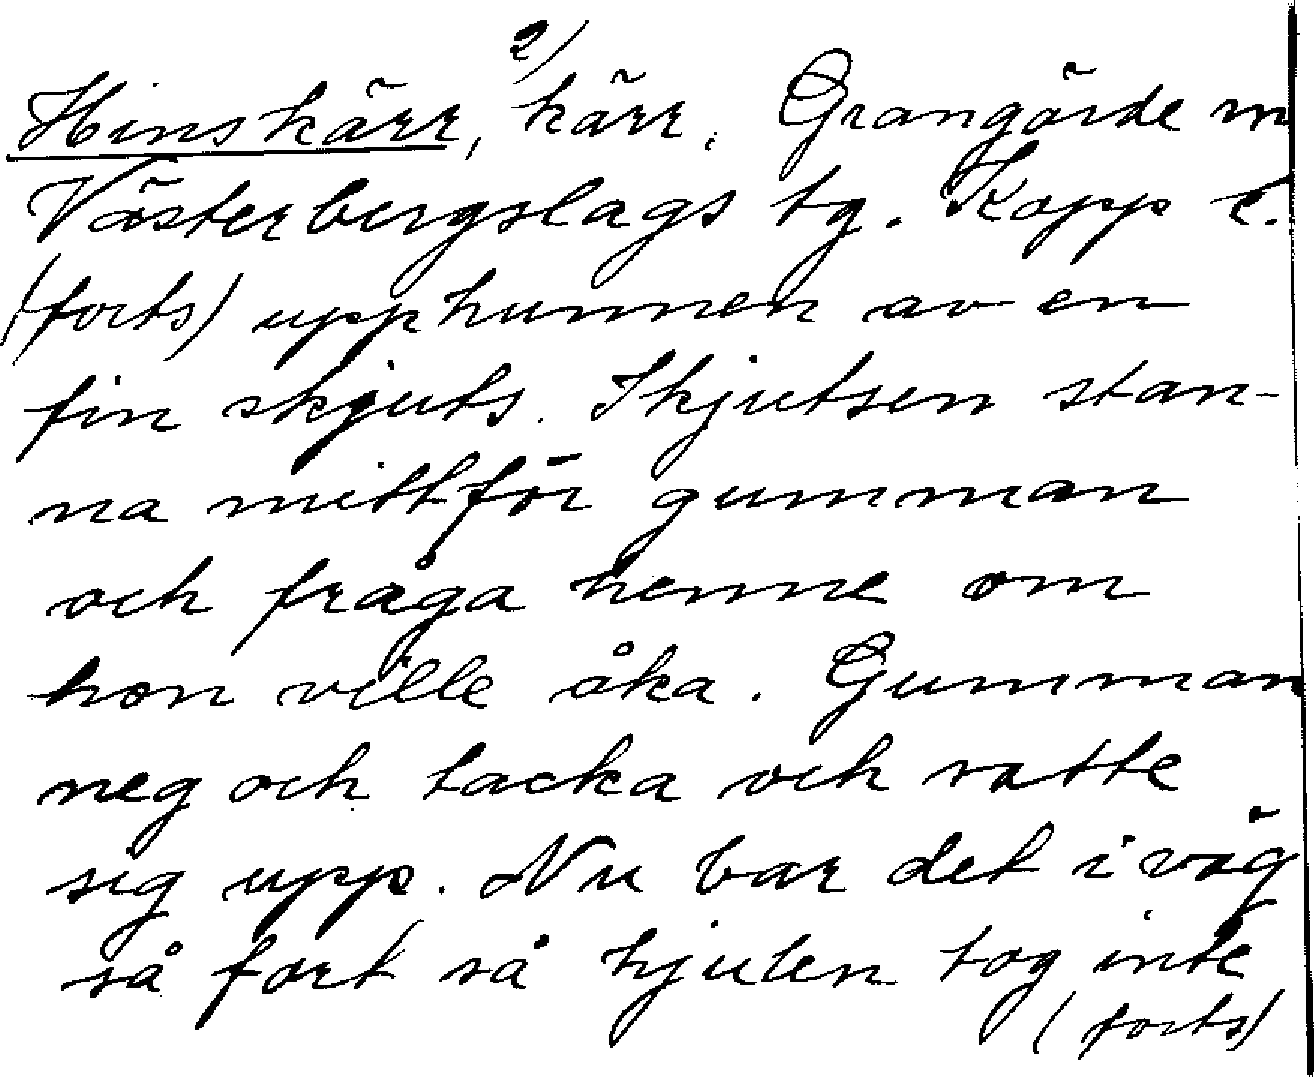 2)
Hinskärr, kärr. Grangärde sn
Västerbergslags tg. Kopp l.
(forts) upphunnen av en
fin skjuts. Skjutsen stan-
na mittför gumman
och fråga henne om
hon ville åka. Gumman
neg och tacka och satte
sig upp. Nu bar det iväg
så fort så hjulen tog inte
(forts)